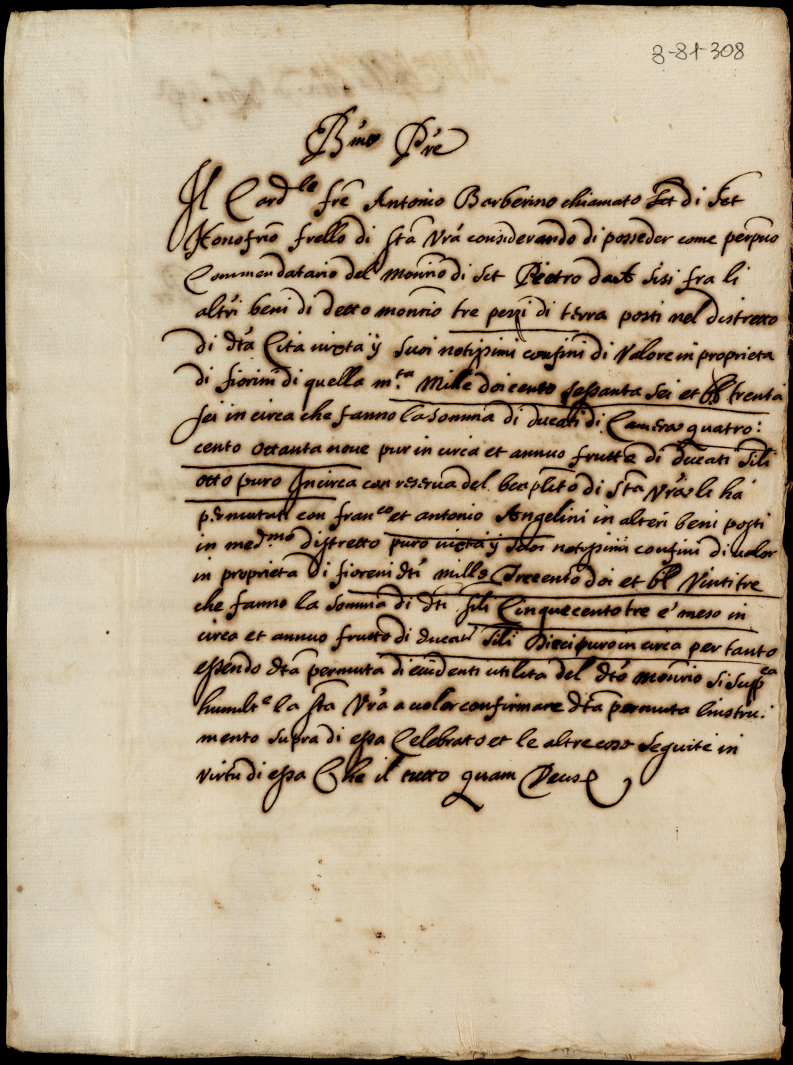 3-81-308
B.mo P're
Il Card.le fre Antonio Barberino chiamato Set di Set
Honofrio frello di Sta Vra considerando di posseder come perpuo
Commendatario del monrio di Set Pietro d'Assisi fra li
altri beni di detto monrio tre pezzi di terra posti nel distretto
di dta Cita iuxta ij suoi notissimi confini di Valore in proprieta
di fiorini di quella m.ta Mille doicento sessanta sei et bl trenta
sei in circa che fanno la somma di ducati di Camera quatro:
cento ottanta nove pur in circa et annuo frutte di Ducati Sili
otto puro Incirca con reserva del beaplito di Sta Vra le ha
permutati con fran.co et antonio Angelini in alteri beni posti
in med.mo distretto puro iuxta ij suoi notissimi confini di valor
in proprieta di fioreni dti mille Trecento doi et bl Vintitre
che fanno la somma di dti sili Cinquecento tre e' meso in
circa et annuo frutto di ducati Sili Dieci puro in circa per tanto
essendo dta permuta di evidenti utilita del dto monrio si supp.ca
humilt.e la Sta Vra a voler confirmare dta permuta linstru:
mento supra di essa Celebrato et le altre cose seguite in
virtu di essa Che il tutto quam Deus